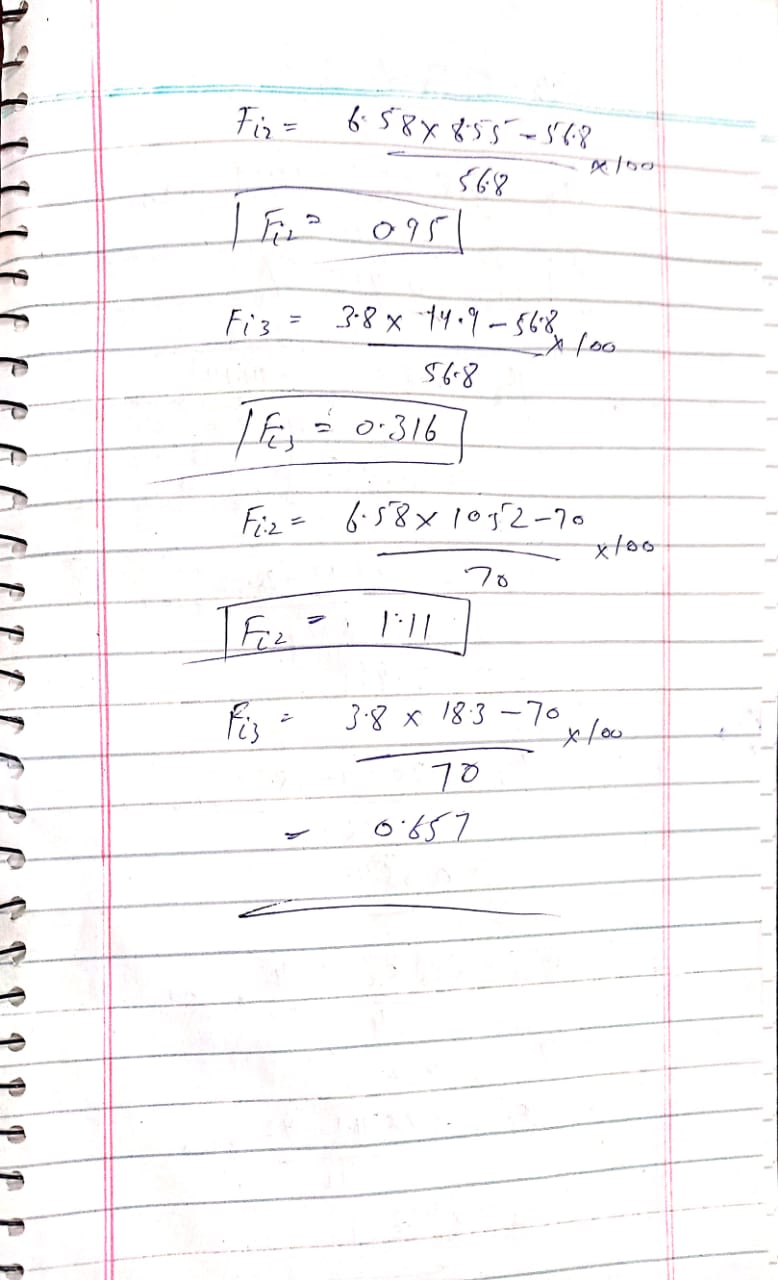 Fi2 = 6.58 x 8.55 - 56.8
56.8 x 100
Fi2 = 0.95
Fi3 = 3.8 x 14.9 - 56.8 x 100
56.8
Fi3 = 0.316
Fi2 = 6.58 x 10.52 - 70 x 100
70
Fi2 = 1.11
Fi3 = 3.8 x 18.3 - 70 x 100
70
= 0.657